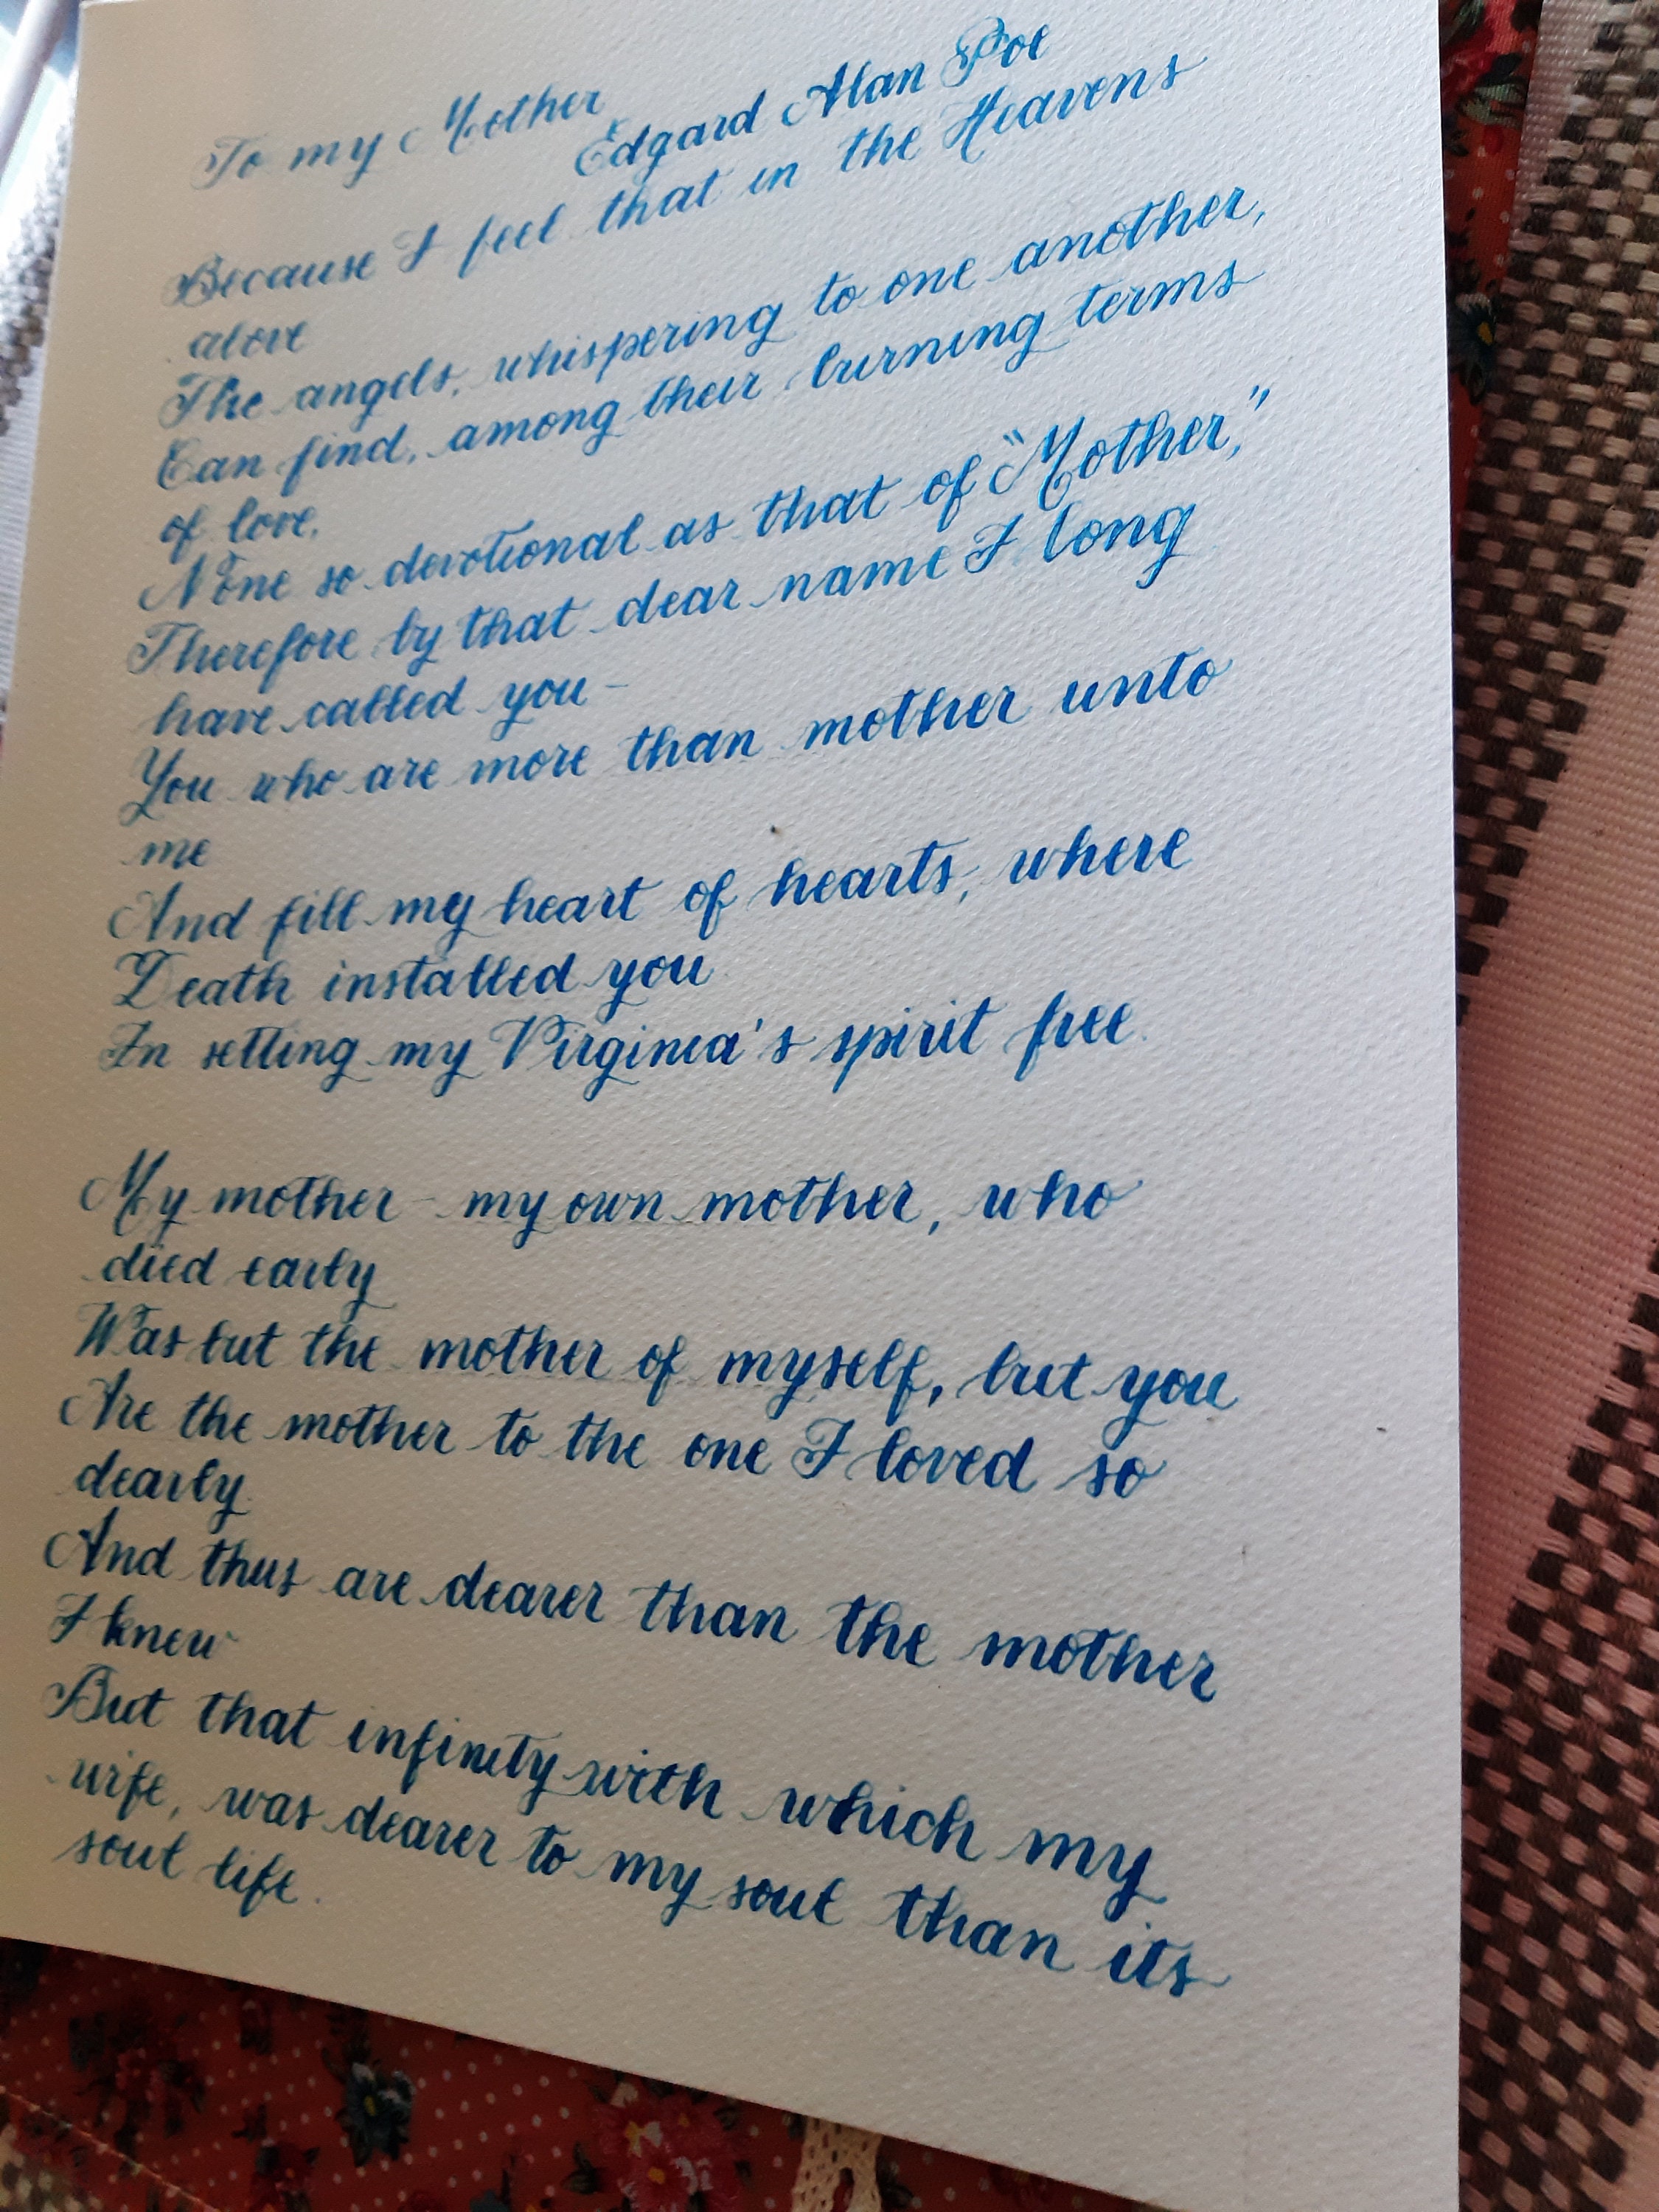 To my Mother
Edgard Alan Poe
Because I feel that in the Heavens
above
The angels, whispering to one another,
Can find, among their burning terms
of love,
None so devotional as that of "Mother,"
Therefore by that dear name I long
have called you-
You who are more than mother unto
me
And fill my heart of hearts, where
Death installed you
In setting my Virginia's spirit free.
My mother - my own mother, who
died early
Was but the mother of myself, but you
Are the mother to the one I loved so
dearly.
And thus are dearer than the mother
I knew
But that infinity with which my
wife, was dearer to my soul than its
soul life.